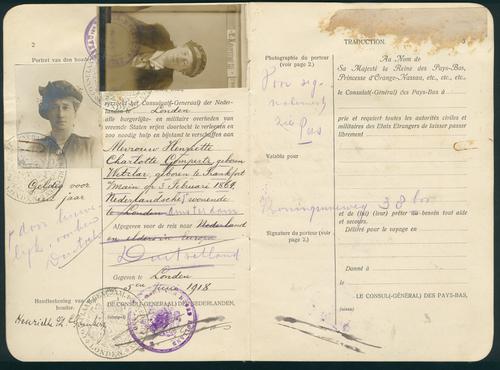 2
Portret van den houder
verzoekt het Consulaat(-Generaal) der Nederlanden te Londen
alle burgerlijke- en militaire overheden van
vreemde Staten vrijen doortocht te verleenen en
zoo noodig hulp en bijstand te verschaffen aan
Mevrouw Henriette
Charlotte Gompertz geboren
Wetzlar, geboren te Frankfort
a/main op 3 Februari 1864,
Nederlandsche wonende
te Londen Amsterdam
Afgegeven voor de reis naar Nederland
en elders in Europa
Duitschland
Geldig voor
jaar
Gegeven te Londen
Juni 1918
Handteekening van den
houder.
DE CONSUL(-GENERAAL) DER NEDERLANDEN,
Henriette
3
TRADUCTION.
Photographie du porteur
(voir page 2.)
Au Nom de
Sa Majesté la Reine des Pays-Bas,
Princesse d'Orange-Nassau, etc., etc., etc.
le Consulat(-Général) des Pays-Bas à
prie et requiert toutes les autorités civiles et
militaires des Etats Etrangers de laisser passer
librement
Pas
Valable pour
Koninginneweg 38
et de (lui) (leur) prêter au besoin tout aide
et secours.
Délivré pour le voyage en
Signature du porteur (voir
page 2.)
Donné à
le
LE CONSUL(-GÉNÉRAL) DES PAYS-BAS,